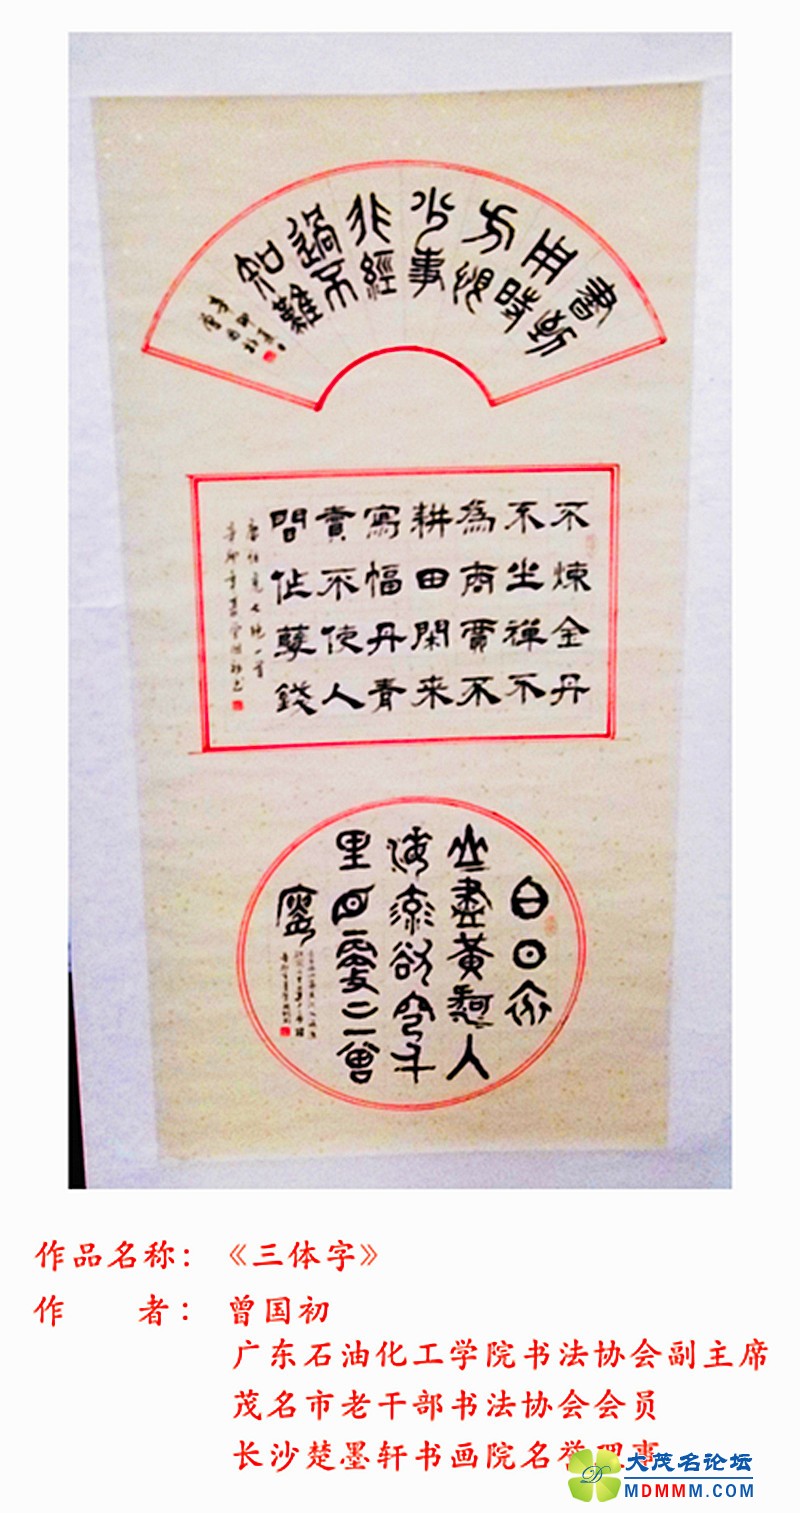 書到
用時
方恨
少事
非經
過不
知難
不煉金丹
不坐禪不
為商賈不
耕田閑来
寫幅丹青
賣不使人
間作孽錢
唐伯虎七绝一首
白日依
山盡黃河入
海流欲窮千
里目更上一層
樓
作品名称：《三体字》
作 者：曾国初
广东石油化工学院书法协会副主席
茂名市老干部书法协会会员
长沙楚墨轩书画院名誉理事
大茂名论坛
MDMMM.COM